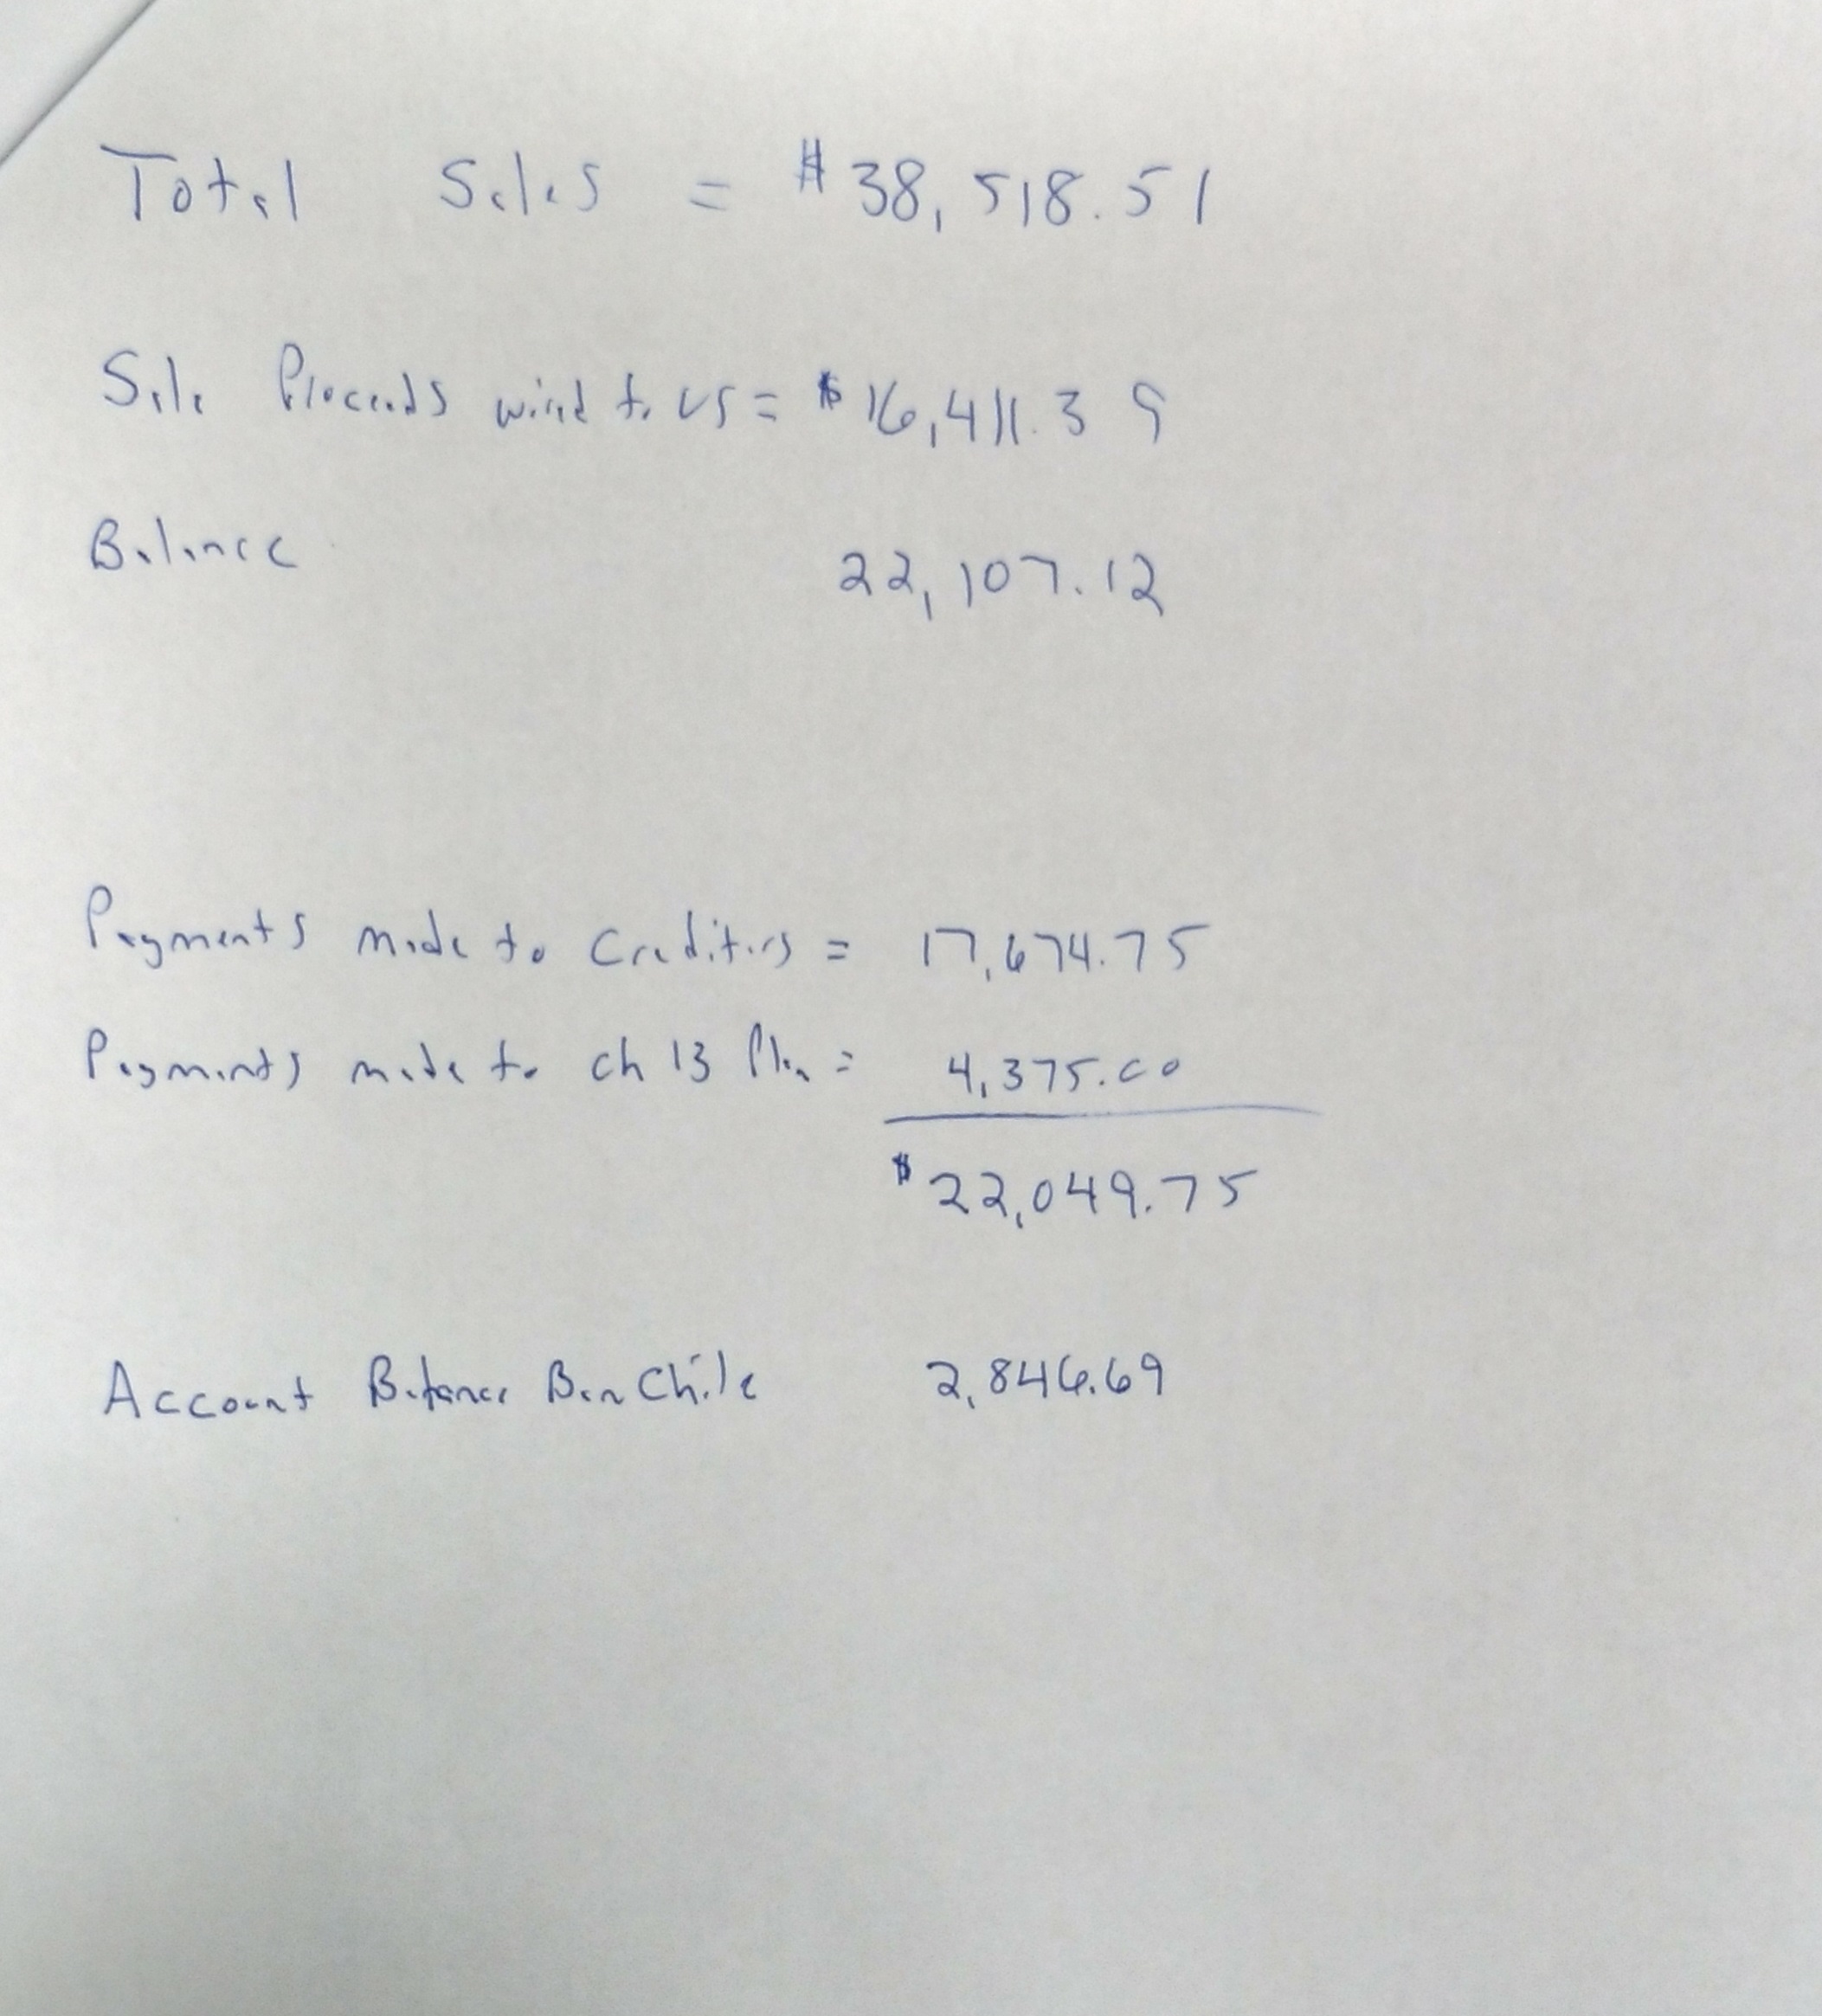 Total Sales = $38,518.51
Sale Proceeds wired to US = $16,411.39
Balance
22,107.12
Payments made to Creditors = 17,674.75
Payments made to ch 13 Plan = 4,375.00
$22,049.75
Account Balance BanChile 2,846.69